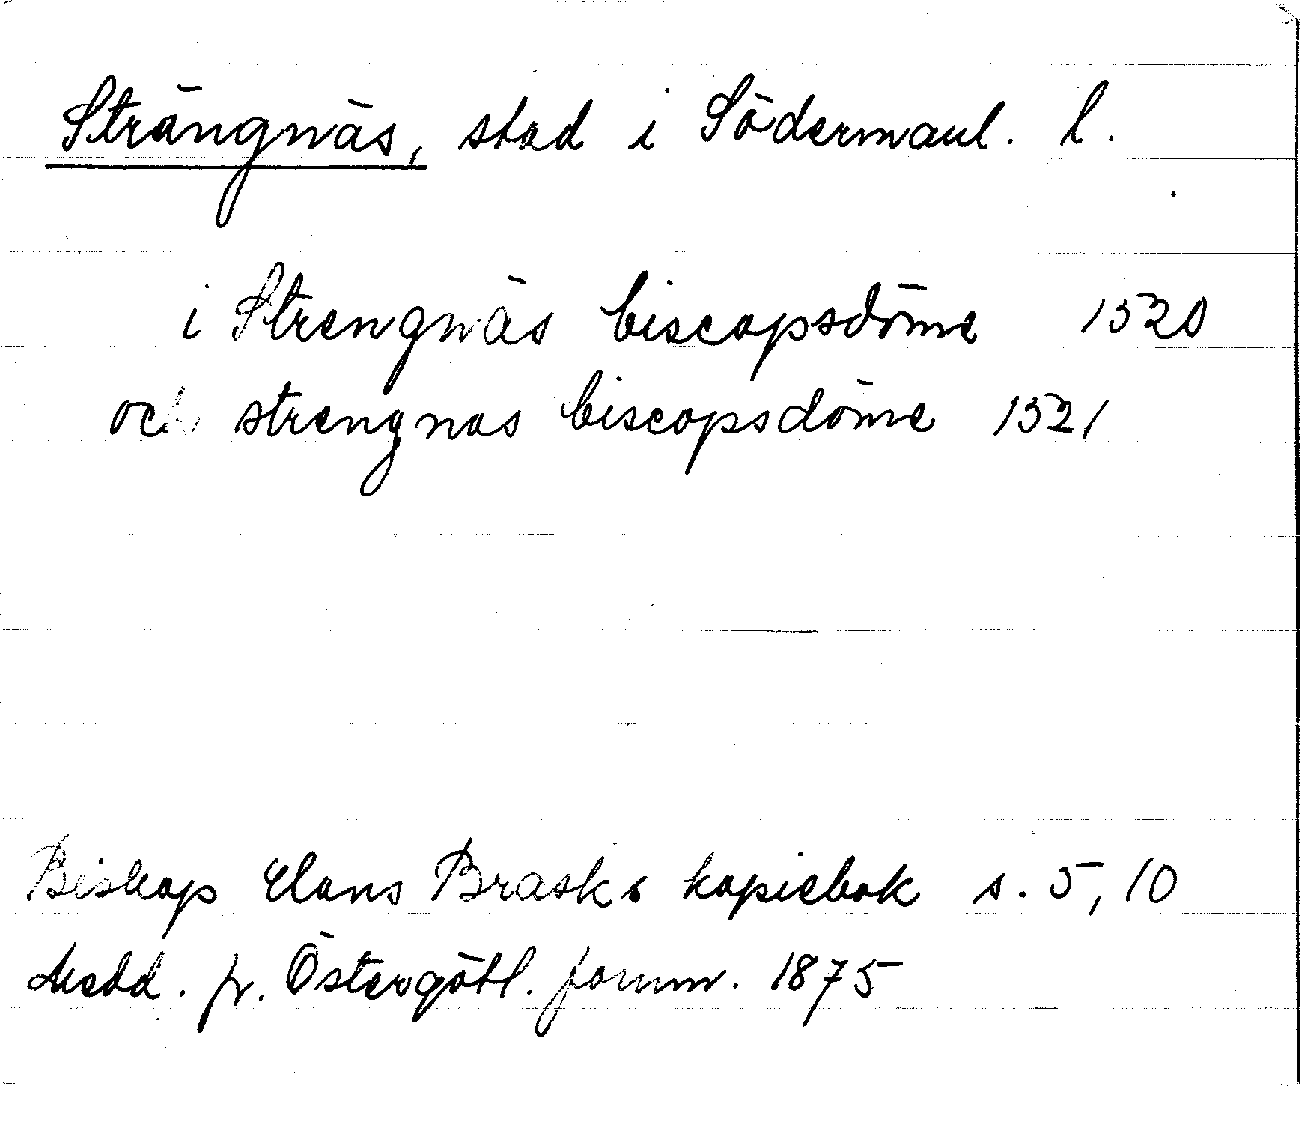 Strängnäs, stad i Södermanl. l.
i Strengnäs biscopsdöme 1520
och strengnas biscopsdöme 1521
Biskop Hans Brasks kopiebok s. 5, 10
Medd. fr. Östergötl. fornm. 1875